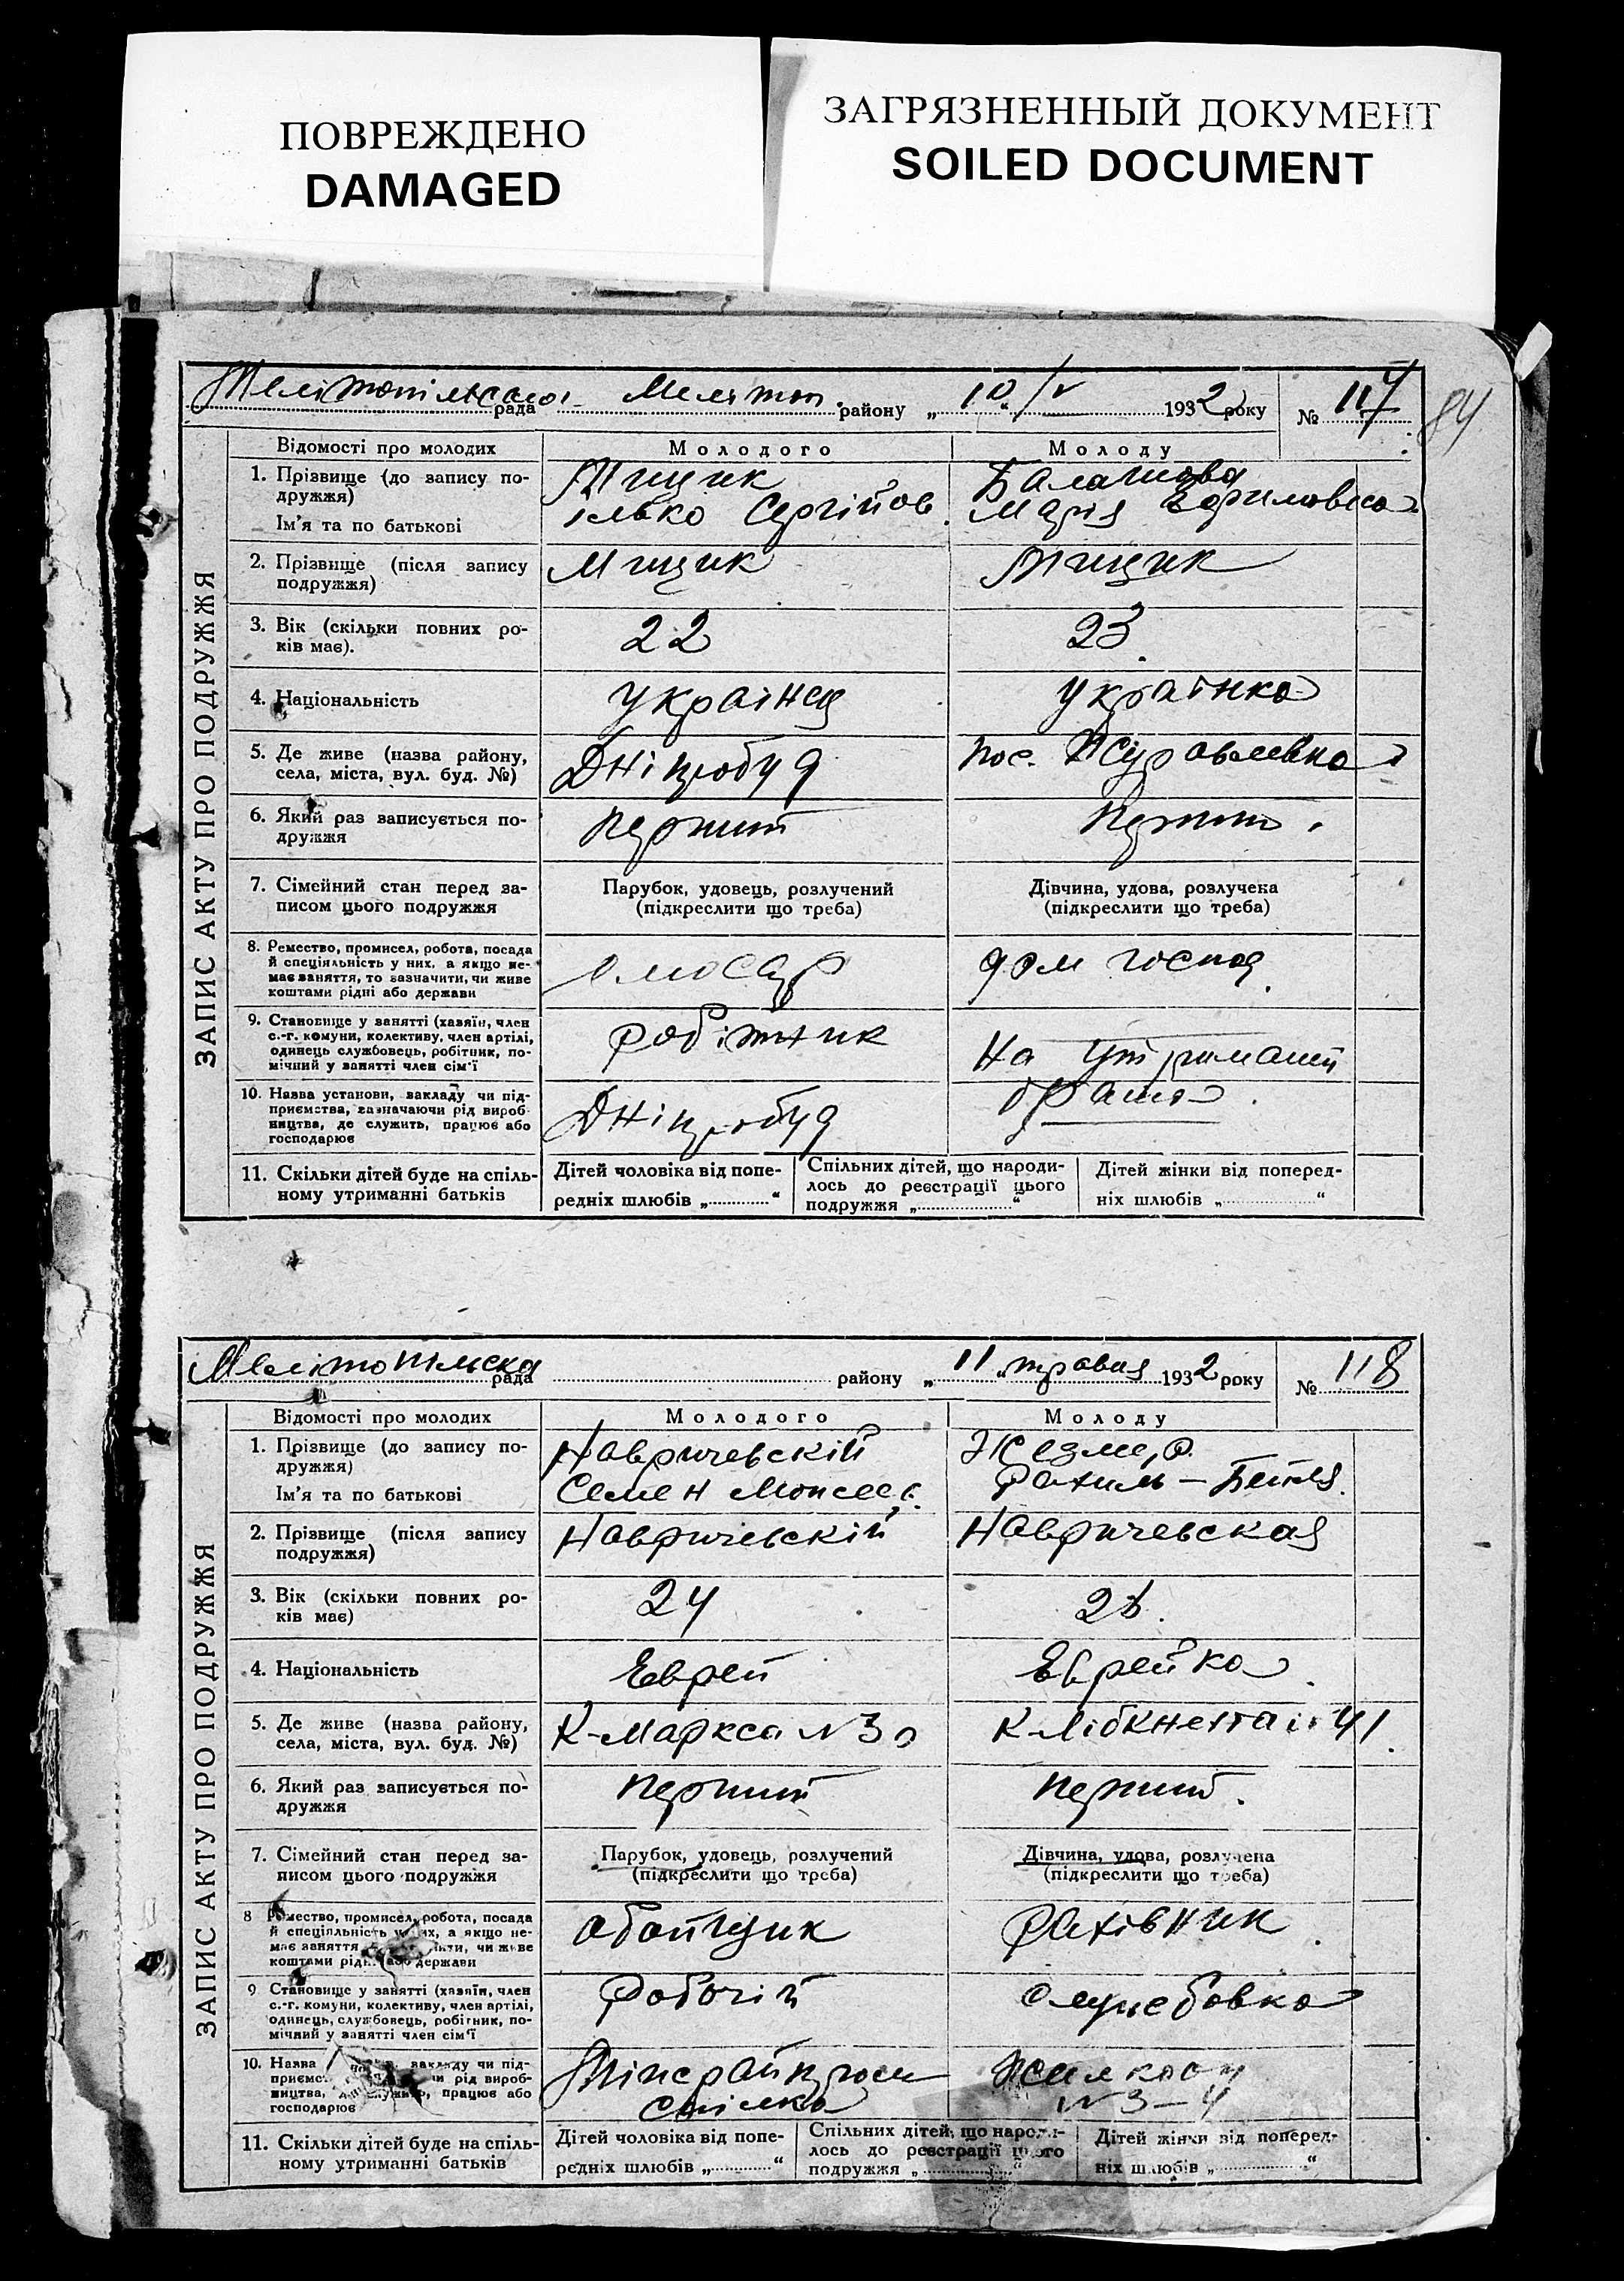 ПОВРЕЖДЕНО
DAMAGED
ЗАГРЯЗНЕННЫЙ ДОКУМЕНТ
SOILED DOCUMENT
84
рада Мелітоп. району „10“ /V 1932 року № 117
ЗАПИС АКТУ ПРО ПОДРУЖЖЯ
Відомості про молодих Молодого Молоду
1. Прізвище (до запису подружжя) Мищик Балашова
Ім’я та по батькові Ілько Сергійов. Марія
2. Прізвище (після запису подружжя) Мищик Мищик
3. Вік (скільки повних років має). 22 23
4. Національність Українец Українка
5. Де живе (назва району, села, міста, вул. буд. №) Дніпробуд пос. Журавлевка
6. Який раз записується подружжя перший перший
7. Сімейний стан перед записом цього подружжя Парубок, удовець, розлучений (підкреслити що треба) Дівчина, удова, розлучена (підкреслити що треба)
8. Ремество, промисел, робота, посада й спеціяльність у них, а якщо немає заняття, то зазначити, чи живе коштами рідні або держави слюсар дом господ.
9. Становище у занятті (хазяїн, член с.-г. комуни, колективу, член артілі, одинець службовець, робітник, помічний у занятті член сім’ї робітник на утриманні
10. Назва установи, закладу чи підприємства, зазначаючи рід виробництва, де служить, працює або господарює Дніпробуд брата.
11. Скільки дітей буде на спільному утриманні батьків Дітей чоловіка від попередніх шлюбів „ “ Спільних дітей, що народилось до реєстрації цього подружжя „ “ Дітей жінки від попередніх шлюбів „ “
Мелітопільска рада району „11“ травня 1932 року № 118
ЗАПИС АКТУ ПРО ПОДРУЖЖЯ
Відомості про молодих Молодого Молоду
1. Прізвище (до запису подружжя) Навричевскій
Ім’я та по батькові Семен Моисеев. Рахиль – Бейля.
2. Прізвище (після запису подружжя) Навричевскій Навричевская
3. Вік (скільки повних років має) 24
4. Національність Еврей Еврейка
5. Де живе (назва району, села, міста, вул. буд. №) К-Маркса N 30 К Лібкнехта 41.
6. Який раз записується подружжя перший перший.
7. Сімейний стан перед записом цього подружжя Парубок, удовець, розлучений (підкреслити що треба) Дівчина, удова, розлучена (підкреслити що треба)
8 Ремество, промисел, робота, посада й спеціяльність у них, а якщо немає заняття чи живе коштами рідні або держави обойщик Рахівник.
9 Становище у занятті (хазяїн, член с.-г. комуни, колективу, член артілі, одинець, службовець, робітник, помічний у занятті член сім’ї Робочій службовка
10. Назва закладу чи підприємства, рід виробництва, працює або господарює спілка N 3–4
11. Скільки дітей буде на спільному утриманні батьків Дітей чоловіка від попередніх шлюбів „ “ Спільних дітей, що народилось до реєстрації цього подружжя „ “ Дітей жінки від попередніх шлюбів „ “